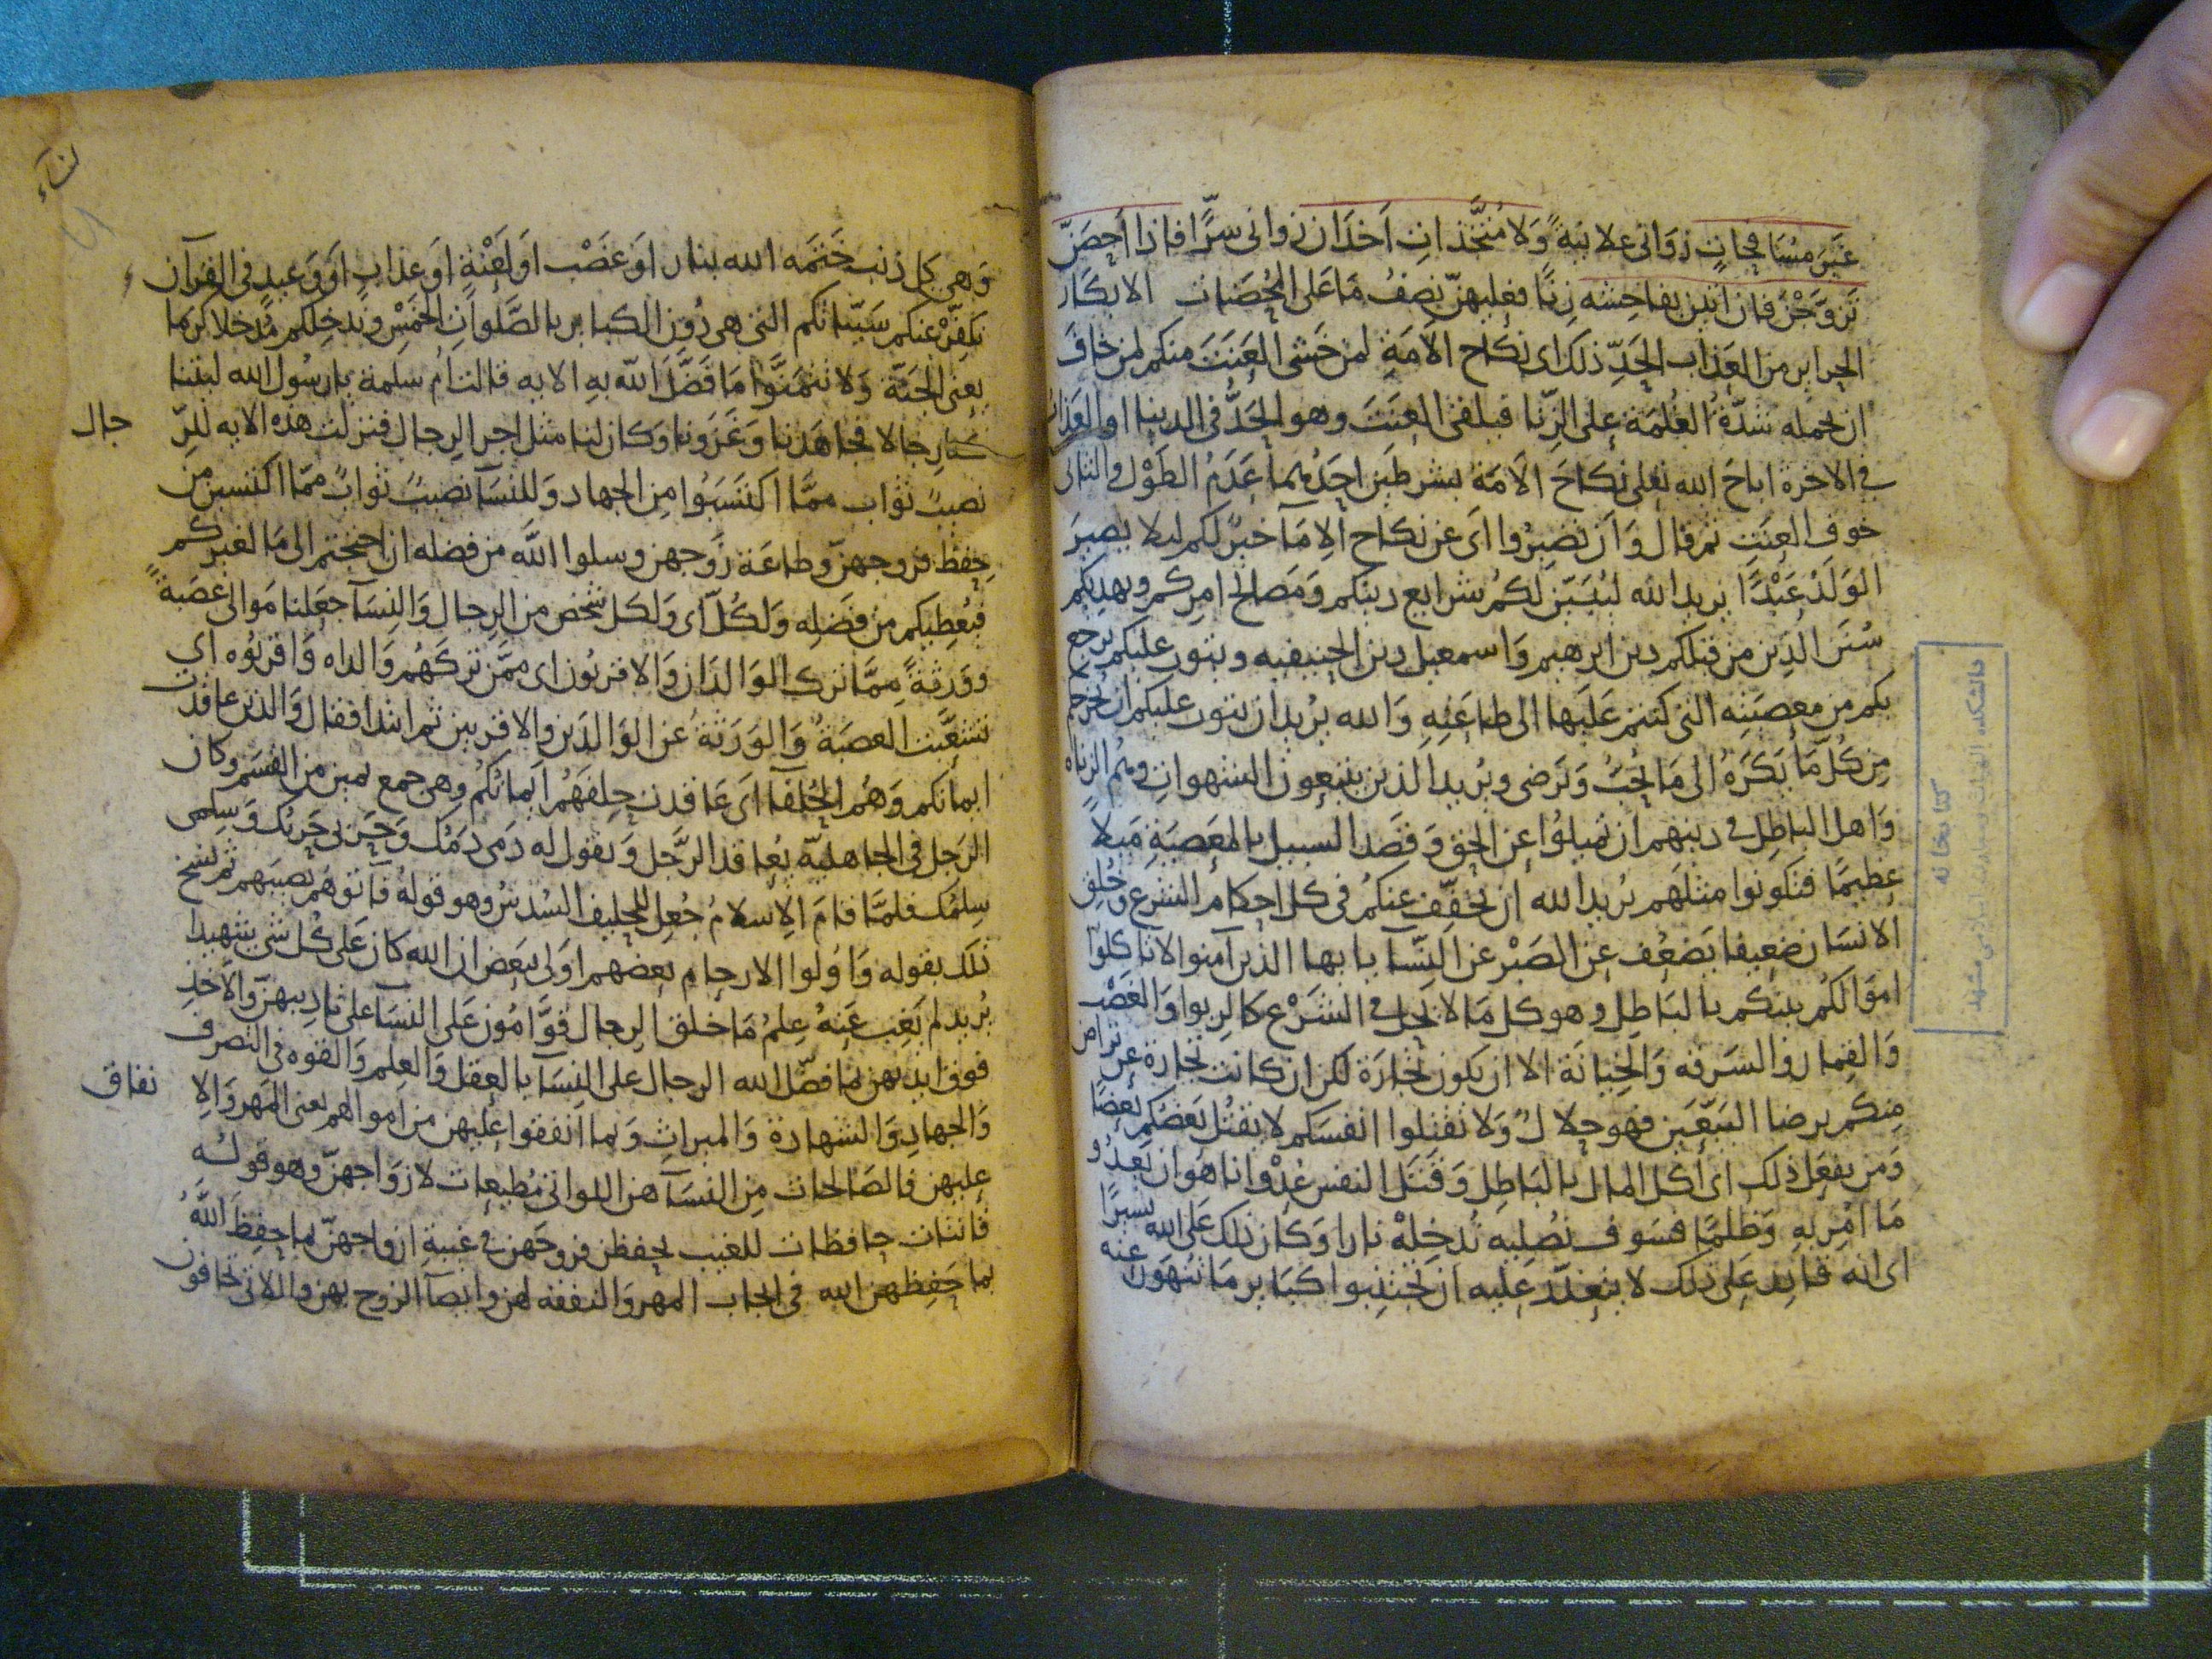 غَيرَ مسَافحاتٍ زوَانى علانيةً وَلا متَّخذاتِ اَخدَان زوانى سرًّا فاذا اُحصِنَّ
تزوَّجنَ فان اتين بفاحِشه زنًا فعليهنّ نصِفُ مَا عَلى المُحصَنات الابكار
الحراير من العَذاب الحَدِّ ذلك اى نكاح الاَمَةِ لمن خَشى العَنَتَ منكم لمن خافَ
ان تحمله شدّةُ الغُلمَة على الزّنا فيلقى العنَتَ وهو الحَدُّ فى الدنيا او العَذاب
فى الاخرة اباحَ الله تعلى نكاحَ الاَمَة بشرطَين احَدُهما عَدَمُ الطَوْل والثانى
خوف العنَتِ ثم قال وَاَن تصبِرُوا اى عن نكاح الامَآ خيرٌ لكم ليلا يصيرَ
الوَلَدُ عَبْدًا يريد الله ليُبَيّن لكُم شرايع دينكم وَمَصالح امركم ويهديكم
سُنَنَ الذين من قبلكم دين ابرهيم وَاسمعيل دين الحنيفيه ويتوب عليكم يرجع
بكم من معصيته التى كنتم عَلَيها الى طاعَتِهِ وَالله يرُيد ان يتوب عليكم ان يُخرجَكم
من كُلّ مَا يَكرَهُ الى مَا يُحبُّ وَيَرضى ويُريد الذين يتبعون الشهوات وهُم الزناه
وَاهل الباطِل فى دينهم ان تميلوُا عن الحق وَقصَد السبيل بالمعَصيَةِ مَيلاً
عظيمًا فتكونوا مثلَهم يُريد الله ان يخفّف عنكُم فى كل احكام الشرع وَخُلِق
الانسَان ضعيفا يَضعُف عن الصَبْر عن النّسَآ يا يها الذين آمنوا لا تاكلوُا
اموَالكُم بينكم بالبَاطِل وهو كل مَا لا يحل فى الشَرْع كالربوا وَالغَصْب
وَالقِمار والسَرقه وَالخِيانَة الا ان يكون تجارَة لكن ان كانت تجارة عن تراض
مِنكم برضا البَيّعَين فهو حلالٌ وَلا تقتلوا انفسَكم لا يقتُل بَعضُكم بعضًا
وَمن يفعَل ذلك اى اكل المال بالبَاطِل وَقَتَل النفس عدُوانا هوَ ان يَعدُو
مَا امُرَ بهِ وَظلمًا فسَوف نصُليه نُدخِلهُ نارا وَكان ذلك عَلى الله يسيرًا
اى الله قادر عَلى ذلك لا يتعذّر عليه ان تجتنبوا كبَاير مَا تنهَون عنه
نسآء
وَهى كل ذنب خَتمَه الله بنار اوَ غضَب اوَ لعْنةٍ او عذابٍ اوَ وَعيد فى القرآن
نكفّرْ عنكم سَيّئاتكم التى هى دُون الكباير بالصَّلواتِ الخَمْسِ وندخِلكم مُدخلا كريما
يعنى الجَنّة وَلا تتمَنّوَا مَا فضَّل الله بهِ الايه قالت اُم سلمة يا رسُول الله ليتنا
كنا رجالا فجاهَدنا وَغَزَونا وَكان لنا مثل اجر الرجال فنزلت هذه الايه للرّ
جال
نصيبٌ ثوَاب ممَّا اكتَسَبُوا من الجهاد وَللنسَآ نصيبٌ ثوَابٌ ممَّا اكتسبن من
حِفظ فروجهنّ وطاعَة زَوجهن وسلوا الله من فضله ان احتجتم الى مَا لغيركم
فيُعطيكم من فضلِه وَلكُلّ اى وَلكل شخصٍ من الرجال وَالنِسَآ جعَلنا مَوالى عَصَبةً
ووَرثةً ممَّا ترك الوَالدَان وَالاقربُون اى ممَّن تركَهُم وَالداه وَاقربوُه اى
تشعّبَت العصَبَةُ وَالوَرَثةُ عَن الوَالدَين والاقربين ثم ابتدا فقال وَالذين عاقدت
ايمانكم وَهُم الحُلفَآ اى عَاقدت حِلفَهُم اَيمانكُم وهى جمع يمين من القسَم وكان
الرَجل فى الجاهليّة يُعاقد الرَّجل وَيقول له دَمى دَمُك وَحَربى حَربُك وَسِلمى
سِلمُك فلمَّا قامَ الاِسلامُ جُعِل للحليف السُدسُ وهو قولهُ فآتوهُم نصيبَهم ثم نسخ
ذلك بقوله وَاوُلوا الارحام بعضهم اوَلى ببَعض ان الله كان عَلى كُل شىٍ شهيدا
يُريد لم يَغِب عَنهُ علمُ مَا خلق الرجال قوَّامُون عَلى النسَآ على تاديبهنّ والاَخذِ
فوق ايديهن بما فضّل الله الرجال على النِسَآ بالعقل وَالعِلم وَالقوه فى التصرف
وَالجهادِ وَالشهادة وَالميراثِ وَبما انَفقوا عليهن من اموالهم يعنى المَهر وَالاِ
نفاق
عليهن فالصَالحات مِن النسَآ هن اللواتى مُطيعات لازوَاجهنّ وهو قولُه
قانتات حافظات للغيب يحفظن فروجَهن فى غيبةِ ازواجهنّ بما حفظ اللهُ
بما حَفِظهن الله فى ايجاب المهر وَالنفقه لهن وايصآ الزوج بهن واللاتى تخافون
كتابخانه